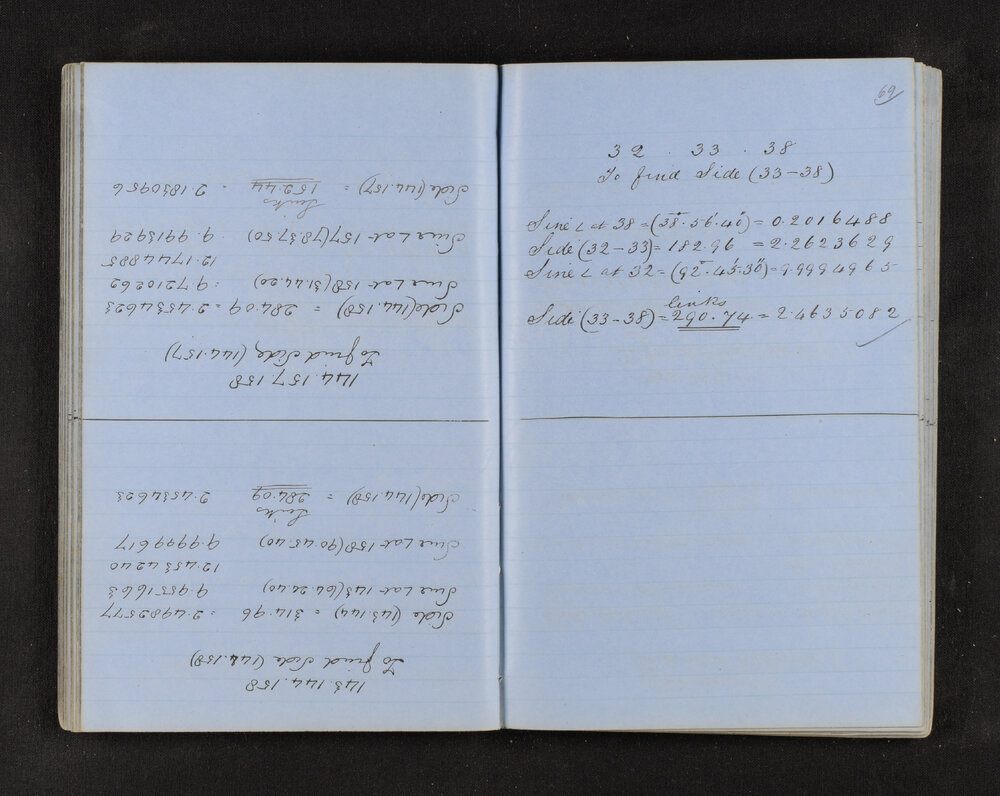 143.144.158
To find Side (144.158)
Side (143.144) = 314.96 = 2.4982577
Sine ∠ at 143 (64.24.40) 9.9551663
12.4534240
Sine ∠ at 158 (90.45.40) 9.9999617
Links
Side (144.158) = 284.09 2.4534623
144.157.158
To find Side (144.157)
Side (144.158) = 284.09 = 2.4534623
Sine ∠ at 158 (31.44.20) 9.7210262
12.1744885
Sine ∠ at 157 (78.37.50) 9.9913929
Links
Side (144.157) = 152.44 = 2.1830956
69
32 . 33 . 38
To find Side (33-38)
Sine ∠ at 38 = (38°.56'.40") = 0.2016488
Side (32-33) = 182.96 = 2.2623629
Sine ∠ at 32 = (92°.45'.30") = 9.9994965
links
Side (33-38) = 290.74 = 2.4635082